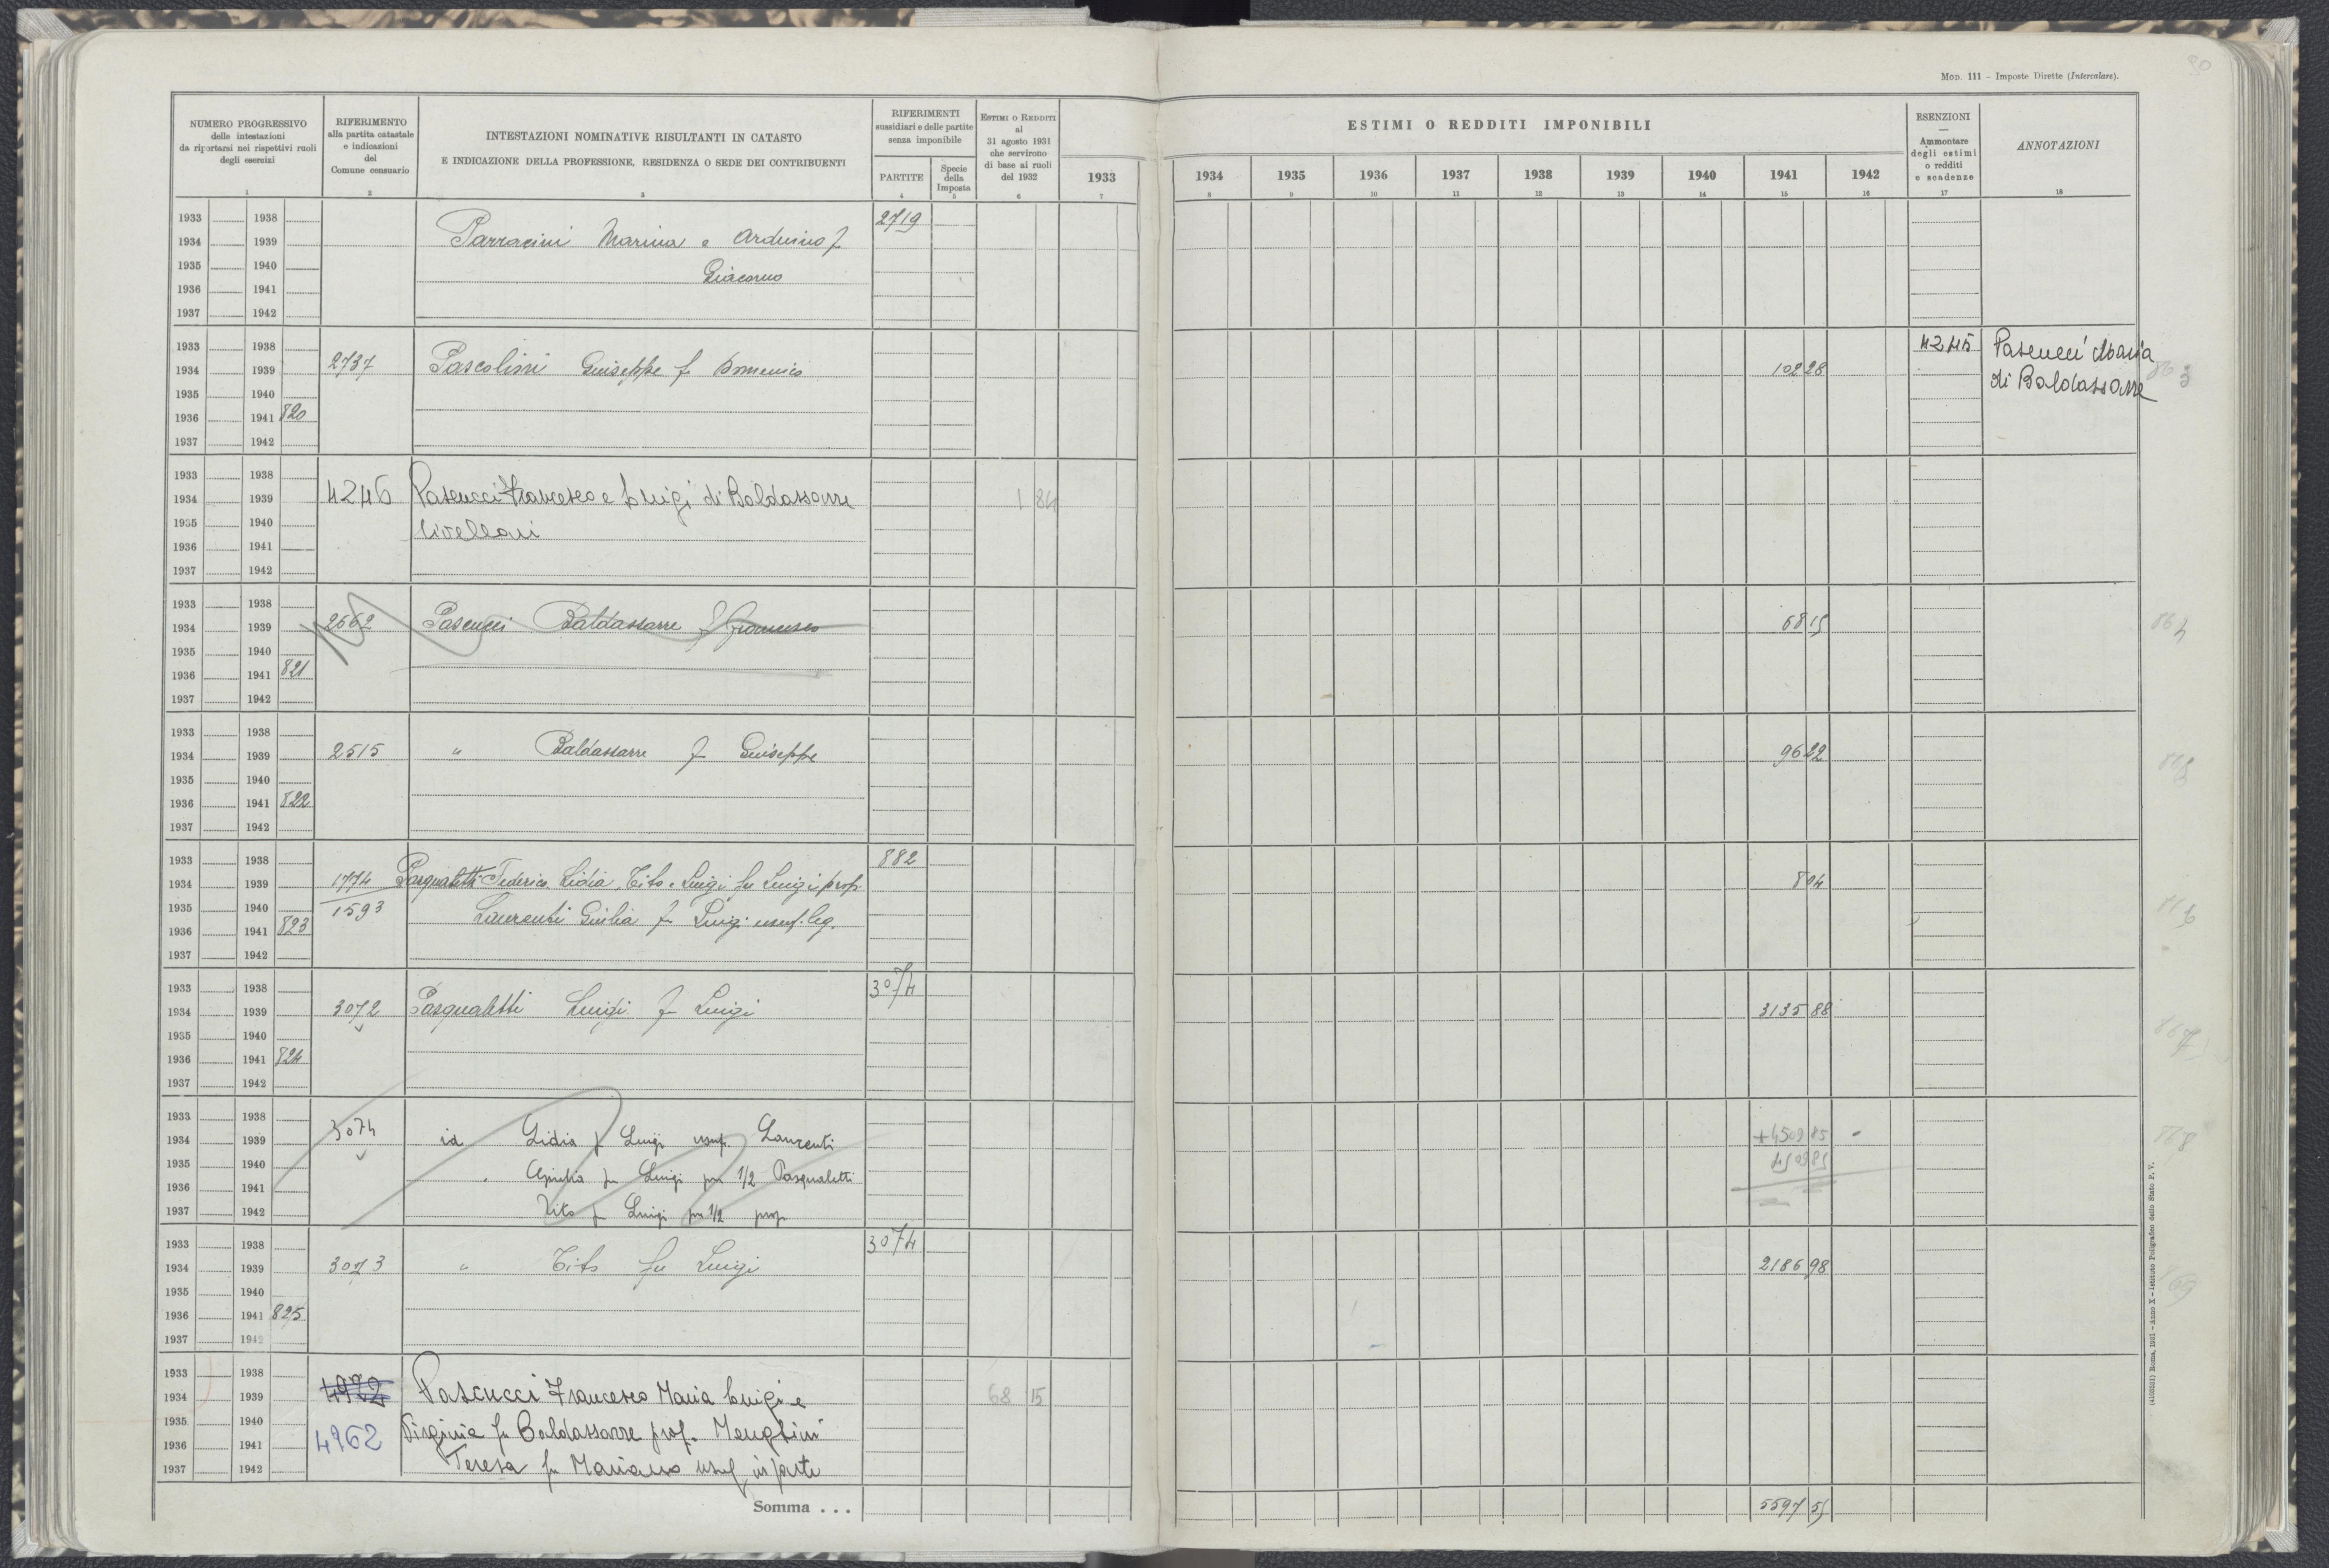 80
Mod. 111 – Imposte Dirette (Intercalare).
NUMERO PROGRESSIVO
delle intestazioni
da riportarsi nei rispettivi ruoli
degli esercizi
1
RIFERIMENTO
alla partita catastale
e indicazioni
del
Comune censuario
2
INTESTAZIONI NOMINATIVE RISULTANTI IN CATASTO
E INDICAZIONE DELLA PROFESSIONE, RESIDENZA O SEDE DEI CONTRIBUENTI
3
RIFERIMENTI
sussidiari e delle partite
senza imponibile
PARTITE
4
Specie
della
Imposta
5
Estimi o Redditi
al
31 agosto 1931
che servirono
di base ai ruoli
del 1932
6
1933
7
ESTIMI O REDDITI IMPONIBILI
1934 1935 1936 1937 1938 1939 1940 1941 1942
8 9 10 11 12 13 14 15 16
ESENZIONI
—
Ammontare
degli estimi
o redditi
e scadenze
17
ANNOTAZIONI
18
1933 1938 2719
1934 1939 Parracini Marina e Arduino f
1935 1940 Giacomo
1936 1941
1937 1942
1933 1938 4245 Pascucci Maria
1934 1939 2737 Pascolini Giuseppe fu Domenico 102 28
di Baldassarre
1935 1940
1936 1941 820
1937 1942
1933 1938
1934 1939 4246 Pascucci Francesco e Luigi di Baldassarre 1 84
1935 1940 livellari
1936 1941
1937 1942
1933 1938
1934 1939 2562 Pascucci Baldassarre f Francesco 68 15
1935 1940
1936 1941 821
1937 1942
1933 1938
1934 1939 2515 " Baldassarre fu Giuseppe 96 22
1935 1940
1936 1941 822
1937 1942
1933 1938 882
1934 1939 1774 Pasqualetti Federico Lidia, Tito e Luigi fu Luigi prop. 8 04
1935 1940 1593 Laurenti Giulia fu Luigi usuf. leg.
1936 1941 823
1937 1942
1933 1938 3074
1934 1939 3072 Pasqualetti Luigi fu Luigi 3135 88
1935 1940
1936 1941 824
1937 1942
1933 1938
1934 1939 3074 id Lidia fu Luigi usuf. Laurenti +4509 85
1935 1940 4509 85
1936 1941 " Giulia fu Luigi per 1/2 Pasqualetti
1937 1942 Tito fu Luigi per 1/2 prop
1933 1938 3074
1934 1939 3073 " Tito fu Luigi 2186 98
1935 1940
1936 1941 825
1937 1942
1933 1938
1934 1939 4972 Pascucci Francesco Maria Luigi e 68 15
1935 1940 Virginia fu Baldassarre prop. Menghini
1936 1941 4962
1937 1942 Teresa fu Mariano usuf in parte
Somma . . . 5597 55
(4103531) Roma, 1931 – Anno X – Istituto Poligrafico dello Stato P. V.